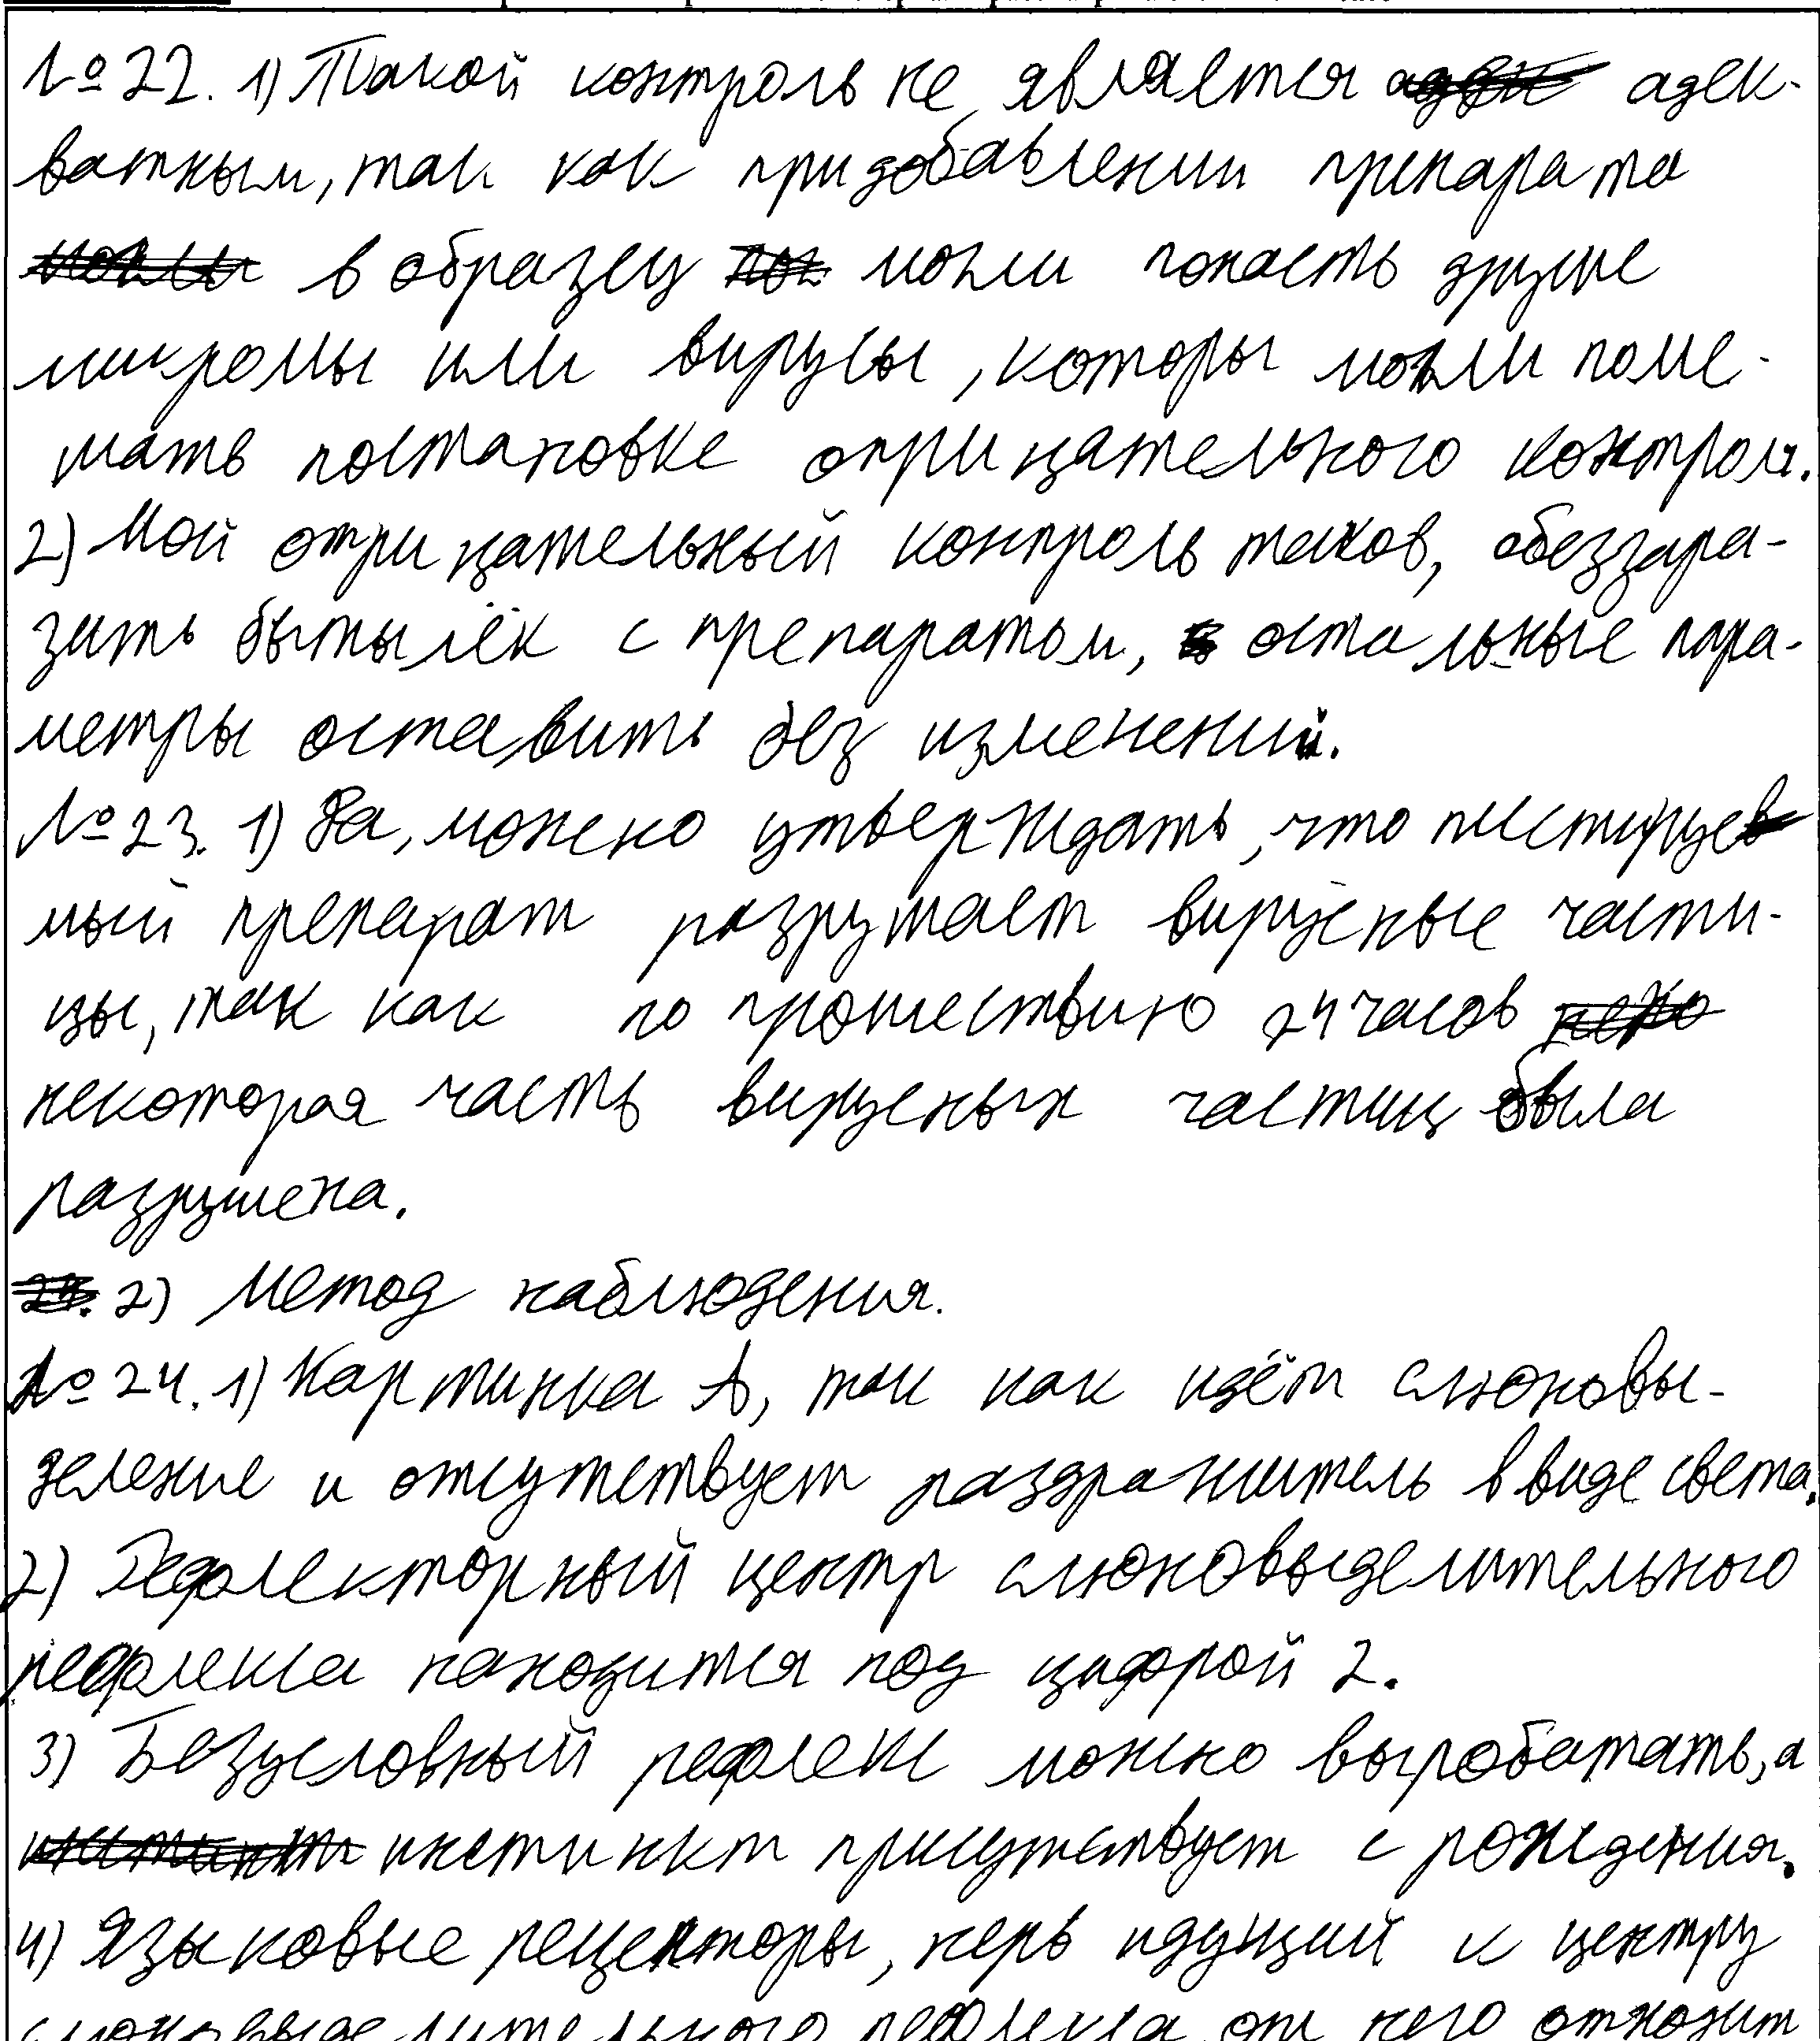 №22. 1) Такой контроль не является адек-
ватным, так как при добавлении препарата
в образец могли попасть другие
микробы или вирусы, которы могли поме-
шать постановке отрицательного контроля.
2) Мой отрицательный контроль таков, обеззара-
зить бытылёк с препаратом, остальные пара-
метры оставить без изменений.
№23. 1) Да, можно утверждать, что тестируе
мый препарат разрушает вирусные части-
цы, так как по прошествию 24 часов
некоторая часть вирусных частиц была
разрушена.
2) Метод наблюдения.
№24. 1) Картинка А, так как идёт слюновы-
деление и отсутствует раздражитель в виде света.
2) Рефлекторный центр слюновыделительного
рефлекса находится под цифрой 2.
3) Безусловный рефлекс можно выработать, а
инстинкт присутствует с рождения.
4) Языковые рецепторы, нерв идущий к центру
слюновыделительного рефлекса, от него отходит